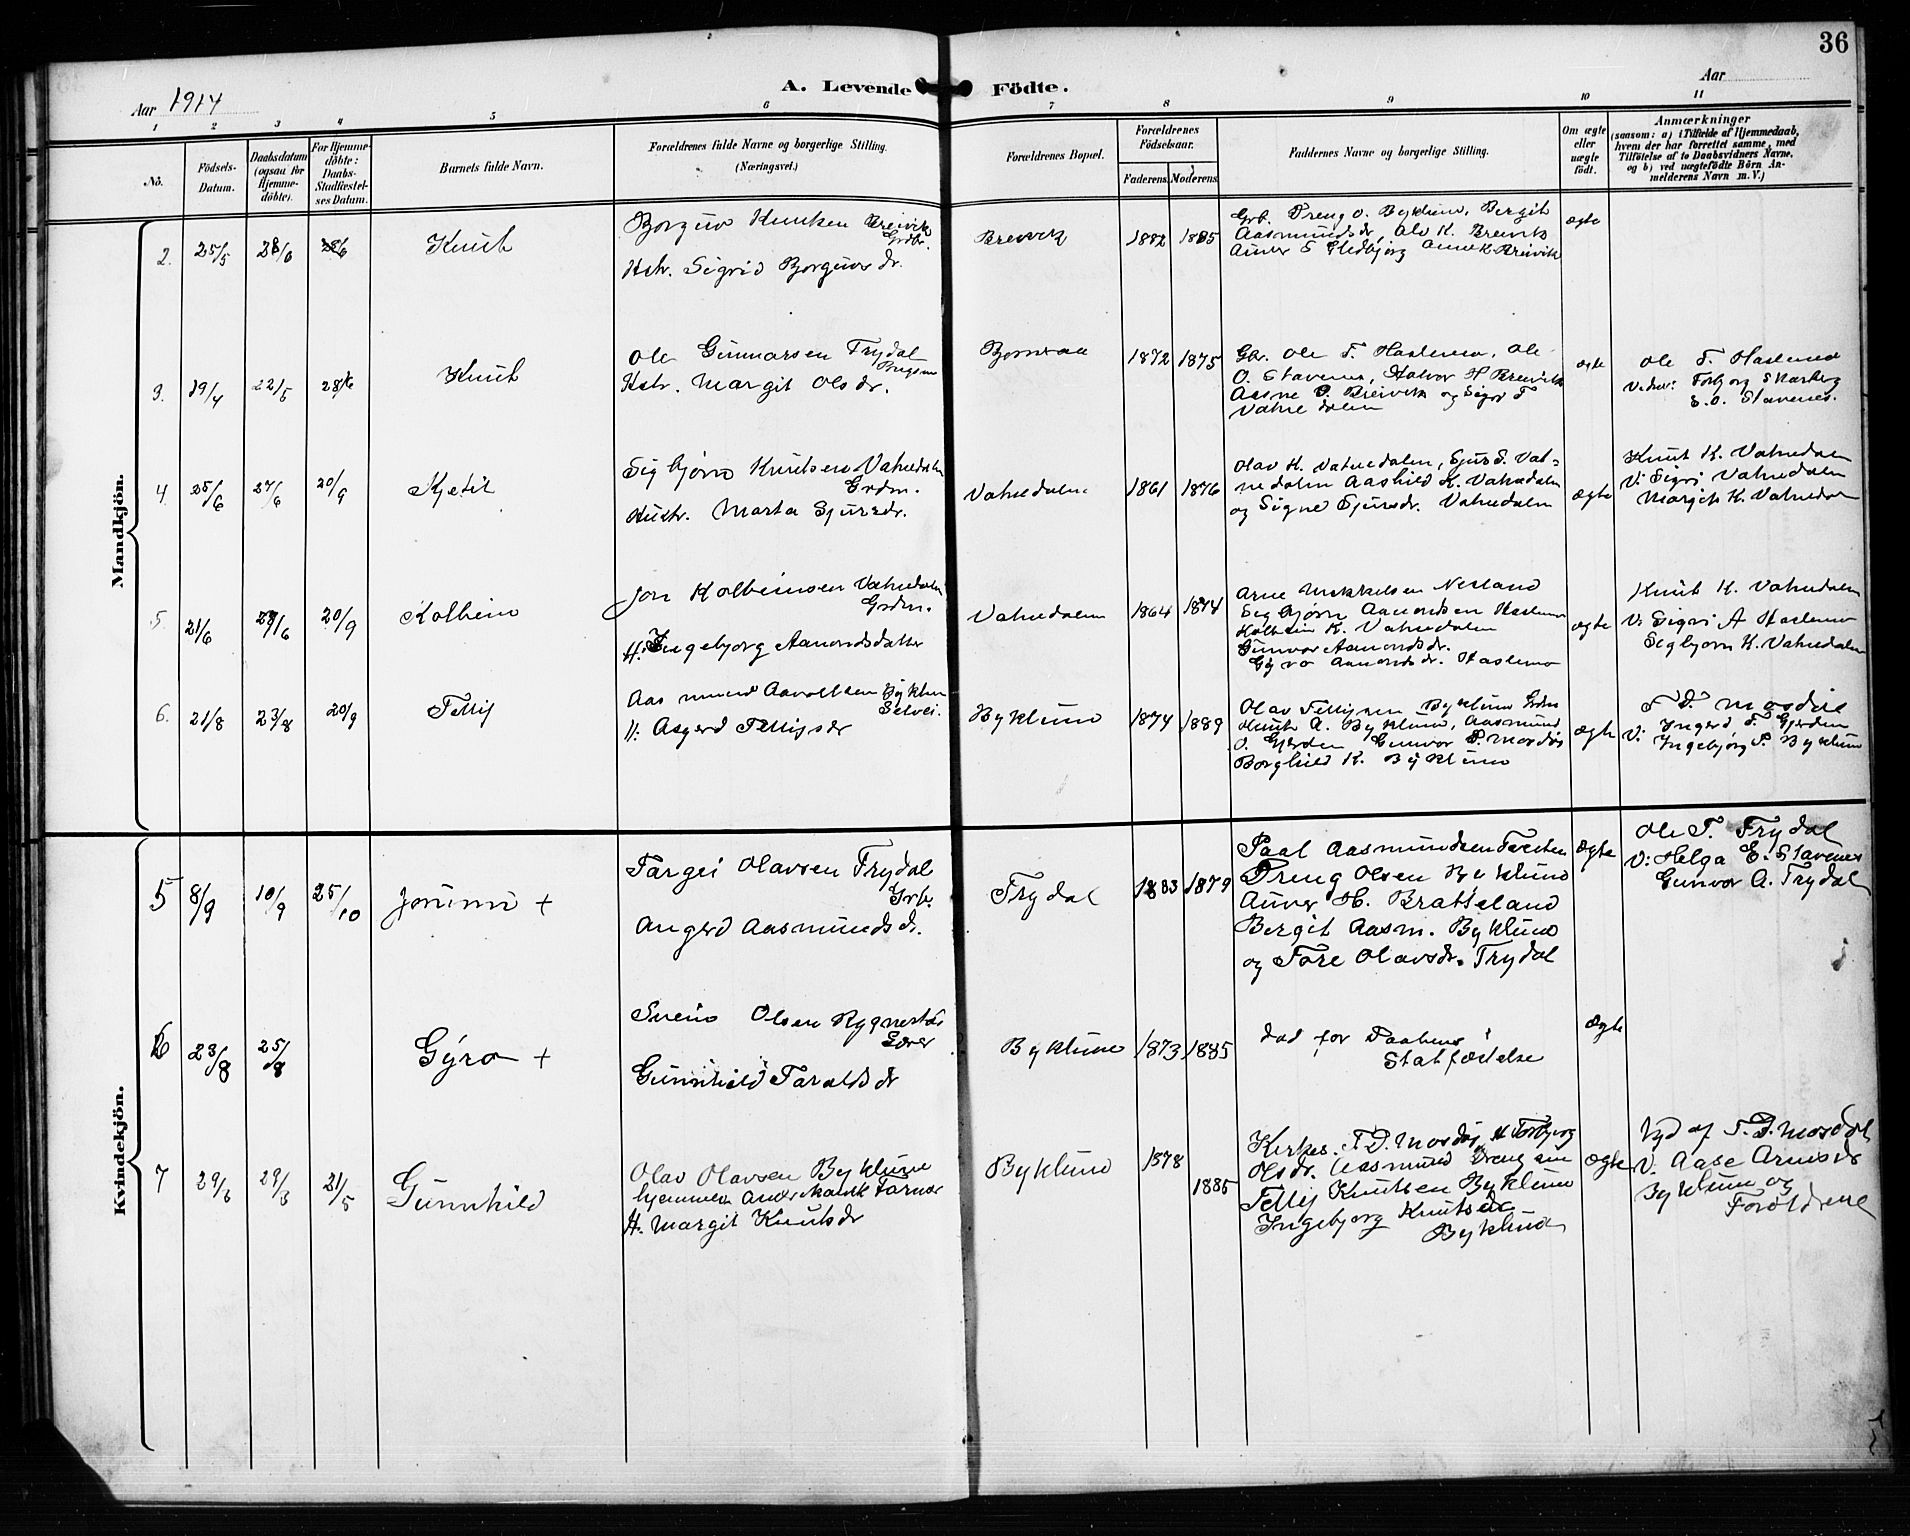 36
Aar 1914
A. Levende Födte.
Aar
1 2 3 4 5 6 7 8 9 10 11
No.
Födsels-
Datum.
Daabsdatum
(ogsaa for
Hjemme-
döbte).
For Hjemme-
döbte:
Daabs-
Stadfæstel-
ses Datum.
Barnets fulde Navn.
Forældrenes fulde Navne og borgerlige Stilling.
(Næringsvei.)
Forældrenes Bopæl.
Forældrenes
Födselsaar.
Faderens. Moderens.
Faddernes Navne og borgerlige Stilling.
Om ægte
eller
uægte
födt.
Anmærkninger
(saasom: a) i Tilfælde af Hjemmedaab,
hvem der har forrettet samme, med
Tilföielse af to Daabsvidners Navne,
og b) ved uægtefödte Börn An-
melderens Navn m. V.)
Mandkjön.
2. 25/5 28/6 Knut
Borguv Knutsen Breivik
Grdbr.
Hstr. Sigrid Borguvsdr.
Breivik 1882 1885
Grb. Dreng O. Byklum, Bergit
Aasmundsdr, Olv K. Breivik
Anne K Breivik
ægte
3. 19/4 22/5 28/6 Knut
Ole Gunnarsen Trydal
Hstr. Margit Olsdr.
Bjornraa 1872 1875
Gbr. Ole T. Haslemo, Ole
O. Stavenes, Halvor H Breivik
Aasne P. Breivik og Sigri T
Vatnedalen
ægte
Ole T. Haslemo
Torbjorg Skarberg
S.O. Stavenes.
4. 25/6 27/6 20/9 Kjetil
Sigbjørn Knutsen Vatnedalen
Grdm.
Hustr. Marta Sjursdr.
Vatnedalen 1861 1876
Olav K. Vatnedalen, Sjur S. Vat-
nedalen Aashild K. Vatnedalen
og Signe Sjursdr. Vatnedalen
ægte
Knut K. Vatnedalen
V: Sigri Vatnedalen
Margit K. Vatnedal
5. 21/6 20/9 Kolbein
Jon Kolbeinsen Vatnedalen
Grdm.
H: Ingebjorg Aamondsdatter
Vatnedalen 1864 1874
Arne Mikkelsen Nesland
Sigbjørn Aamondsen Haslemo
Kolbein K. Vatnedalen
Gunvor Aamondsdr.
Gyro Aamondsdr. Haslemo
ægte
Knut K. Vatnedalen
V: Sigri A Haslemo
Sigbjorn K. Vatnedalen
6. 21/8 23/8 20/9 Tellif
Aasmund Aavoldsen Byklum
Selvei.
H: Asgerd Tellifsdr
Byklum 1874 1889
Olav Tellifsen Byklum Grdm
Knut A. Byklum, Aasmund
O. Gjerden Gunvor D. Mosdøl
Borghild K. Byklum
ægte
T D Mosdøl
V: Ingerd T. Gjerden
Ingebjørg T. Byklum
Kvindekjön.
5 8/9 10/9 25/10 Jorunn +
Targei Olavsen Trydal
Grb.
Angerd Aasmundsdr.
Trydal 1883 1879
Paal Aasmundsen Tvesten
Dreng Olsen Byklum
Anver H. Bratteland
Bergit Aasm. Byklum
og Tore Olavsdr. Trydal
ægte
Ole T. Trydal
V: Helga E. Stavenes
Gunvor A. Trydal
6 23/8 25/8 Gÿro +
Svein Olsen Rygnestad
Gunnhild Taraldsdr
Byklum 1873 1885
død før Daabens
Statfæstelse
Ægte
7 29/3 29/3 21/5 Gunnhild
Olav Olavsen Byklum
H. Margit Knutsdr
Byklum 1878 1885
Kirkes. T D. Mosdøl, H Torbjorg
Olsdr. Aasmund Drengsen
Tellif Knutsen Byklum
Ingebjorg Knutsdr
Byklum
ægte
Vid af T. D. Mosdøl
V. Aase Arnesdr
Byklum og
Forældrene